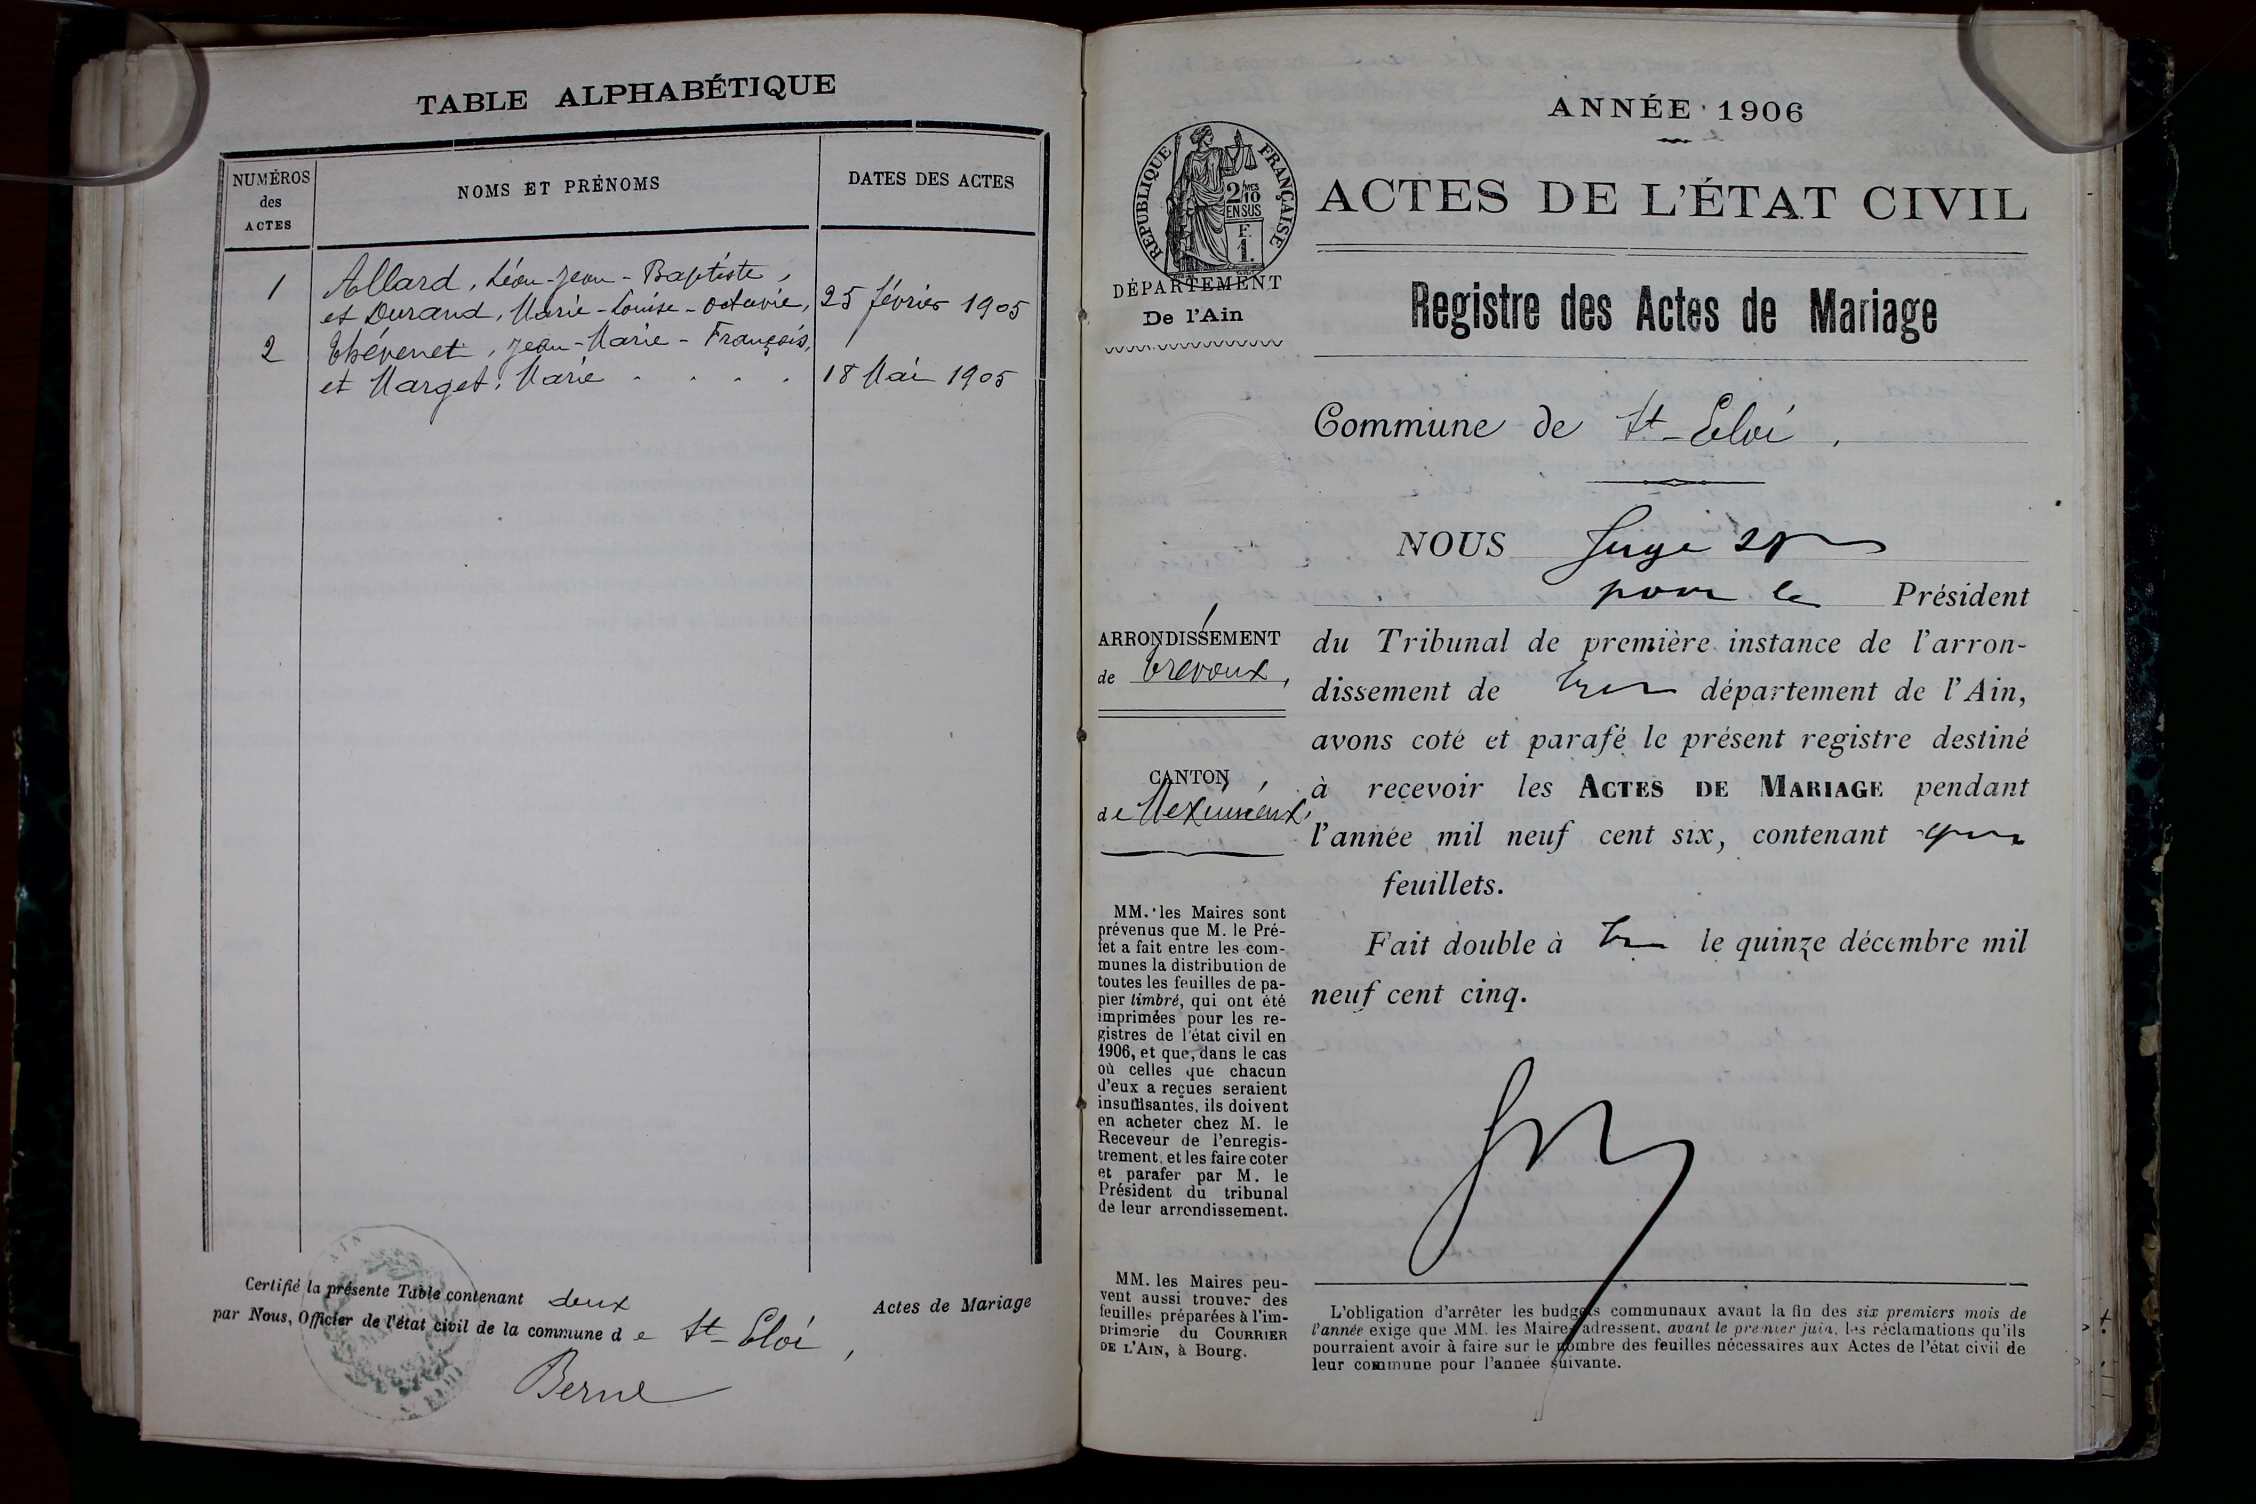 TABLE ALPHABÉTIQUE
NUMÉROS
des
ACTES
NOMS ET PRÉNOMS
DATES DES ACTES
1
Allard, Léon-Jean-Baptiste,
et Durand, Marie-Louise-Octavie,
25 février 1905
2
Thévenet, Jean-Marie-François,
et Marget, Marie . . . .
18 Mai 1905
Certifié la présente Table contenant deux Actes de Mariage
par Nous, Officier de l'état civil de la commune de St-Eloi,
Berne
ANNÉE 1906
RÉPUBLIQUE FRANÇAISE
2/10MES
EN SUS
F.
1.
DÉPARTEMENT
De l'Ain
ARRONDISSEMENT
de Trévoux,
CANTON
de Meximieux,
MM. les Maires sont
prévenus que M. le Pré-
fet a fait entre les com-
munes la distribution de
toutes les feuilles de pa-
pier timbré, qui ont été
imprimées pour les re-
gistres de l'état civil en
1906, et que, dans le cas
où celles que chacun
d'eux a reçues seraient
insuffisantes, ils doivent
en acheter chez M. le
Receveur de l'enregis-
trement, et les faire coter
et parafer par M. le
Président du tribunal
de leur arrondissement.
MM. les Maires peu-
vent aussi trouver des
feuilles préparées à l'im-
primerie du COURRIER
DE L'AIN, à Bourg.
ACTES DE L'ÉTAT CIVIL
Registre des Actes de Mariage
Commune de St-Eloi,
NOUS Juge
pour le Président
du Tribunal de première instance de l'arron-
dissement de département de l'Ain,
avons coté et parafé le présent registre destiné
à recevoir les ACTES DE MARIAGE pendant
l'année mil neuf cent six, contenant
feuillets.
Fait double à le quinze décembre mil
neuf cent cinq.
L'obligation d'arrêter les budgets communaux avant la fin des six premiers mois de
l'année exige que MM. les Maires adressent, avant le premier juin, les réclamations qu'ils
pourraient avoir à faire sur le nombre des feuilles nécessaires aux Actes de l'état civil de
leur commune pour l'année suivante.